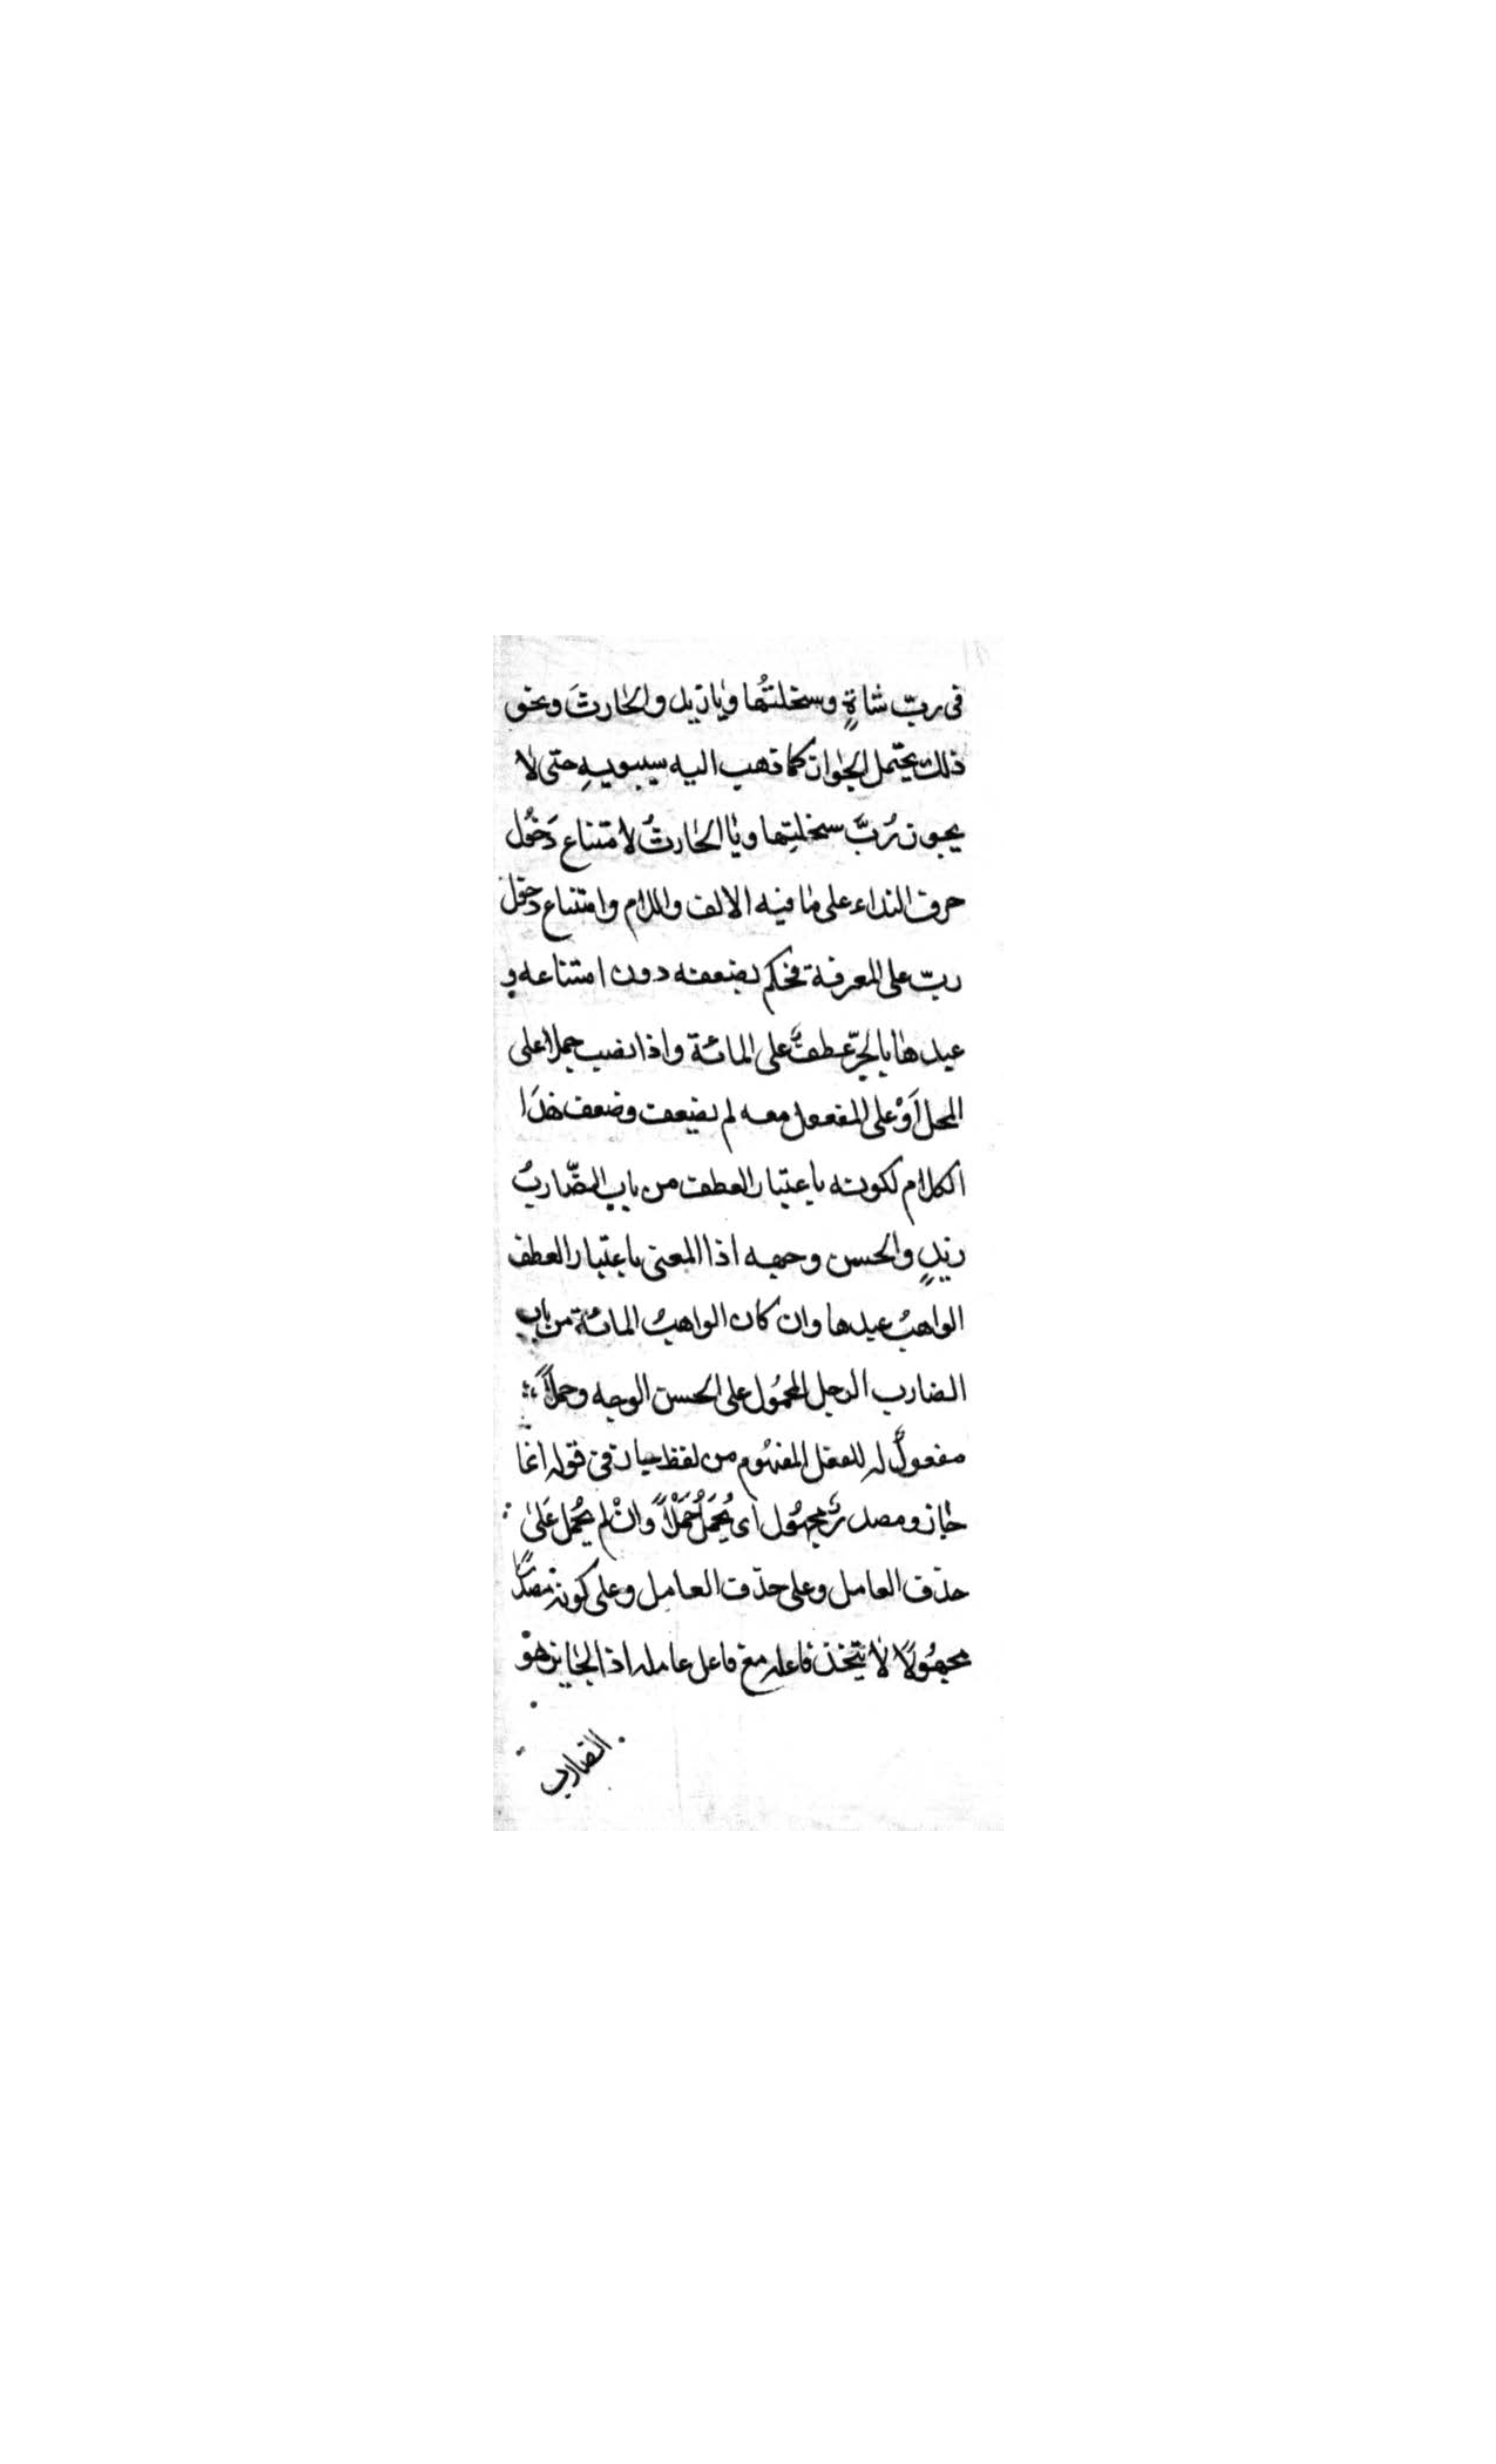 فى ربّ شاةٍ وسخلتُها ويا زيد والحارثَ ونحو
ذلك يحتمل الجواز كما ذهب اليه سيبويهِ حتى لا
يجوز رُبَّ سخلتِها ويا الحارثُ لامتناع دَخُول
حرف النداء على ما فيه الالف واللام وامتناع دخول
ربّ على المعرفة فحكم بضعفه دون امتناعه و
عبدها بالجرّ عطفٌ على المائة واذا نصب حملا على
المحل اَوْ على المفعول معه لم يضعف وضعف هذَا
الكلام لكونه باعتبار العطف من باب الضّاربُ
زيدٍ والحسن وجهه اذا المعنى باعتبار العطف
الواهبُ عبدها وان كان الواهبُ المائة من باب
الضارب الرجل المحمُول على الحسن الوجه وحملاً
مفعولٌ له للفعل المفهُوم من لفظ جاز فى قوله انما
جاز ومصدرٌ مجهُول اى يُحْمَلُ حَمْلاً وَانْ لم يُحْمل عَلىٰ
حذف العامل وعلى حذف العامل وعلى كونه مصدرًا
مجهُولًا لا يتخذ فاعله مع فاعل عامله اذا الجايز هو
الضارب